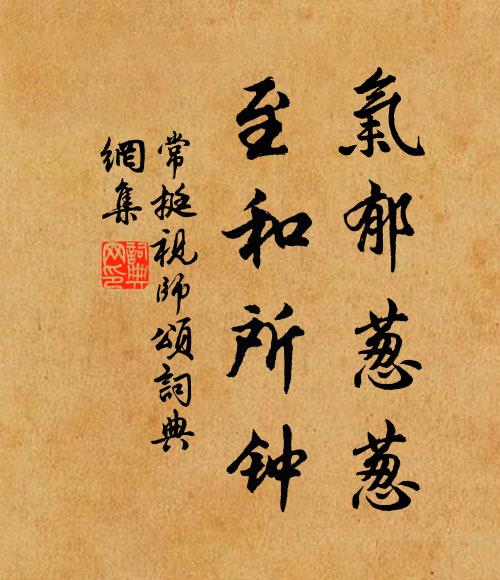 氣郁葱葱
至和所钟
常挺視師頌詞典
網集
詞典網印